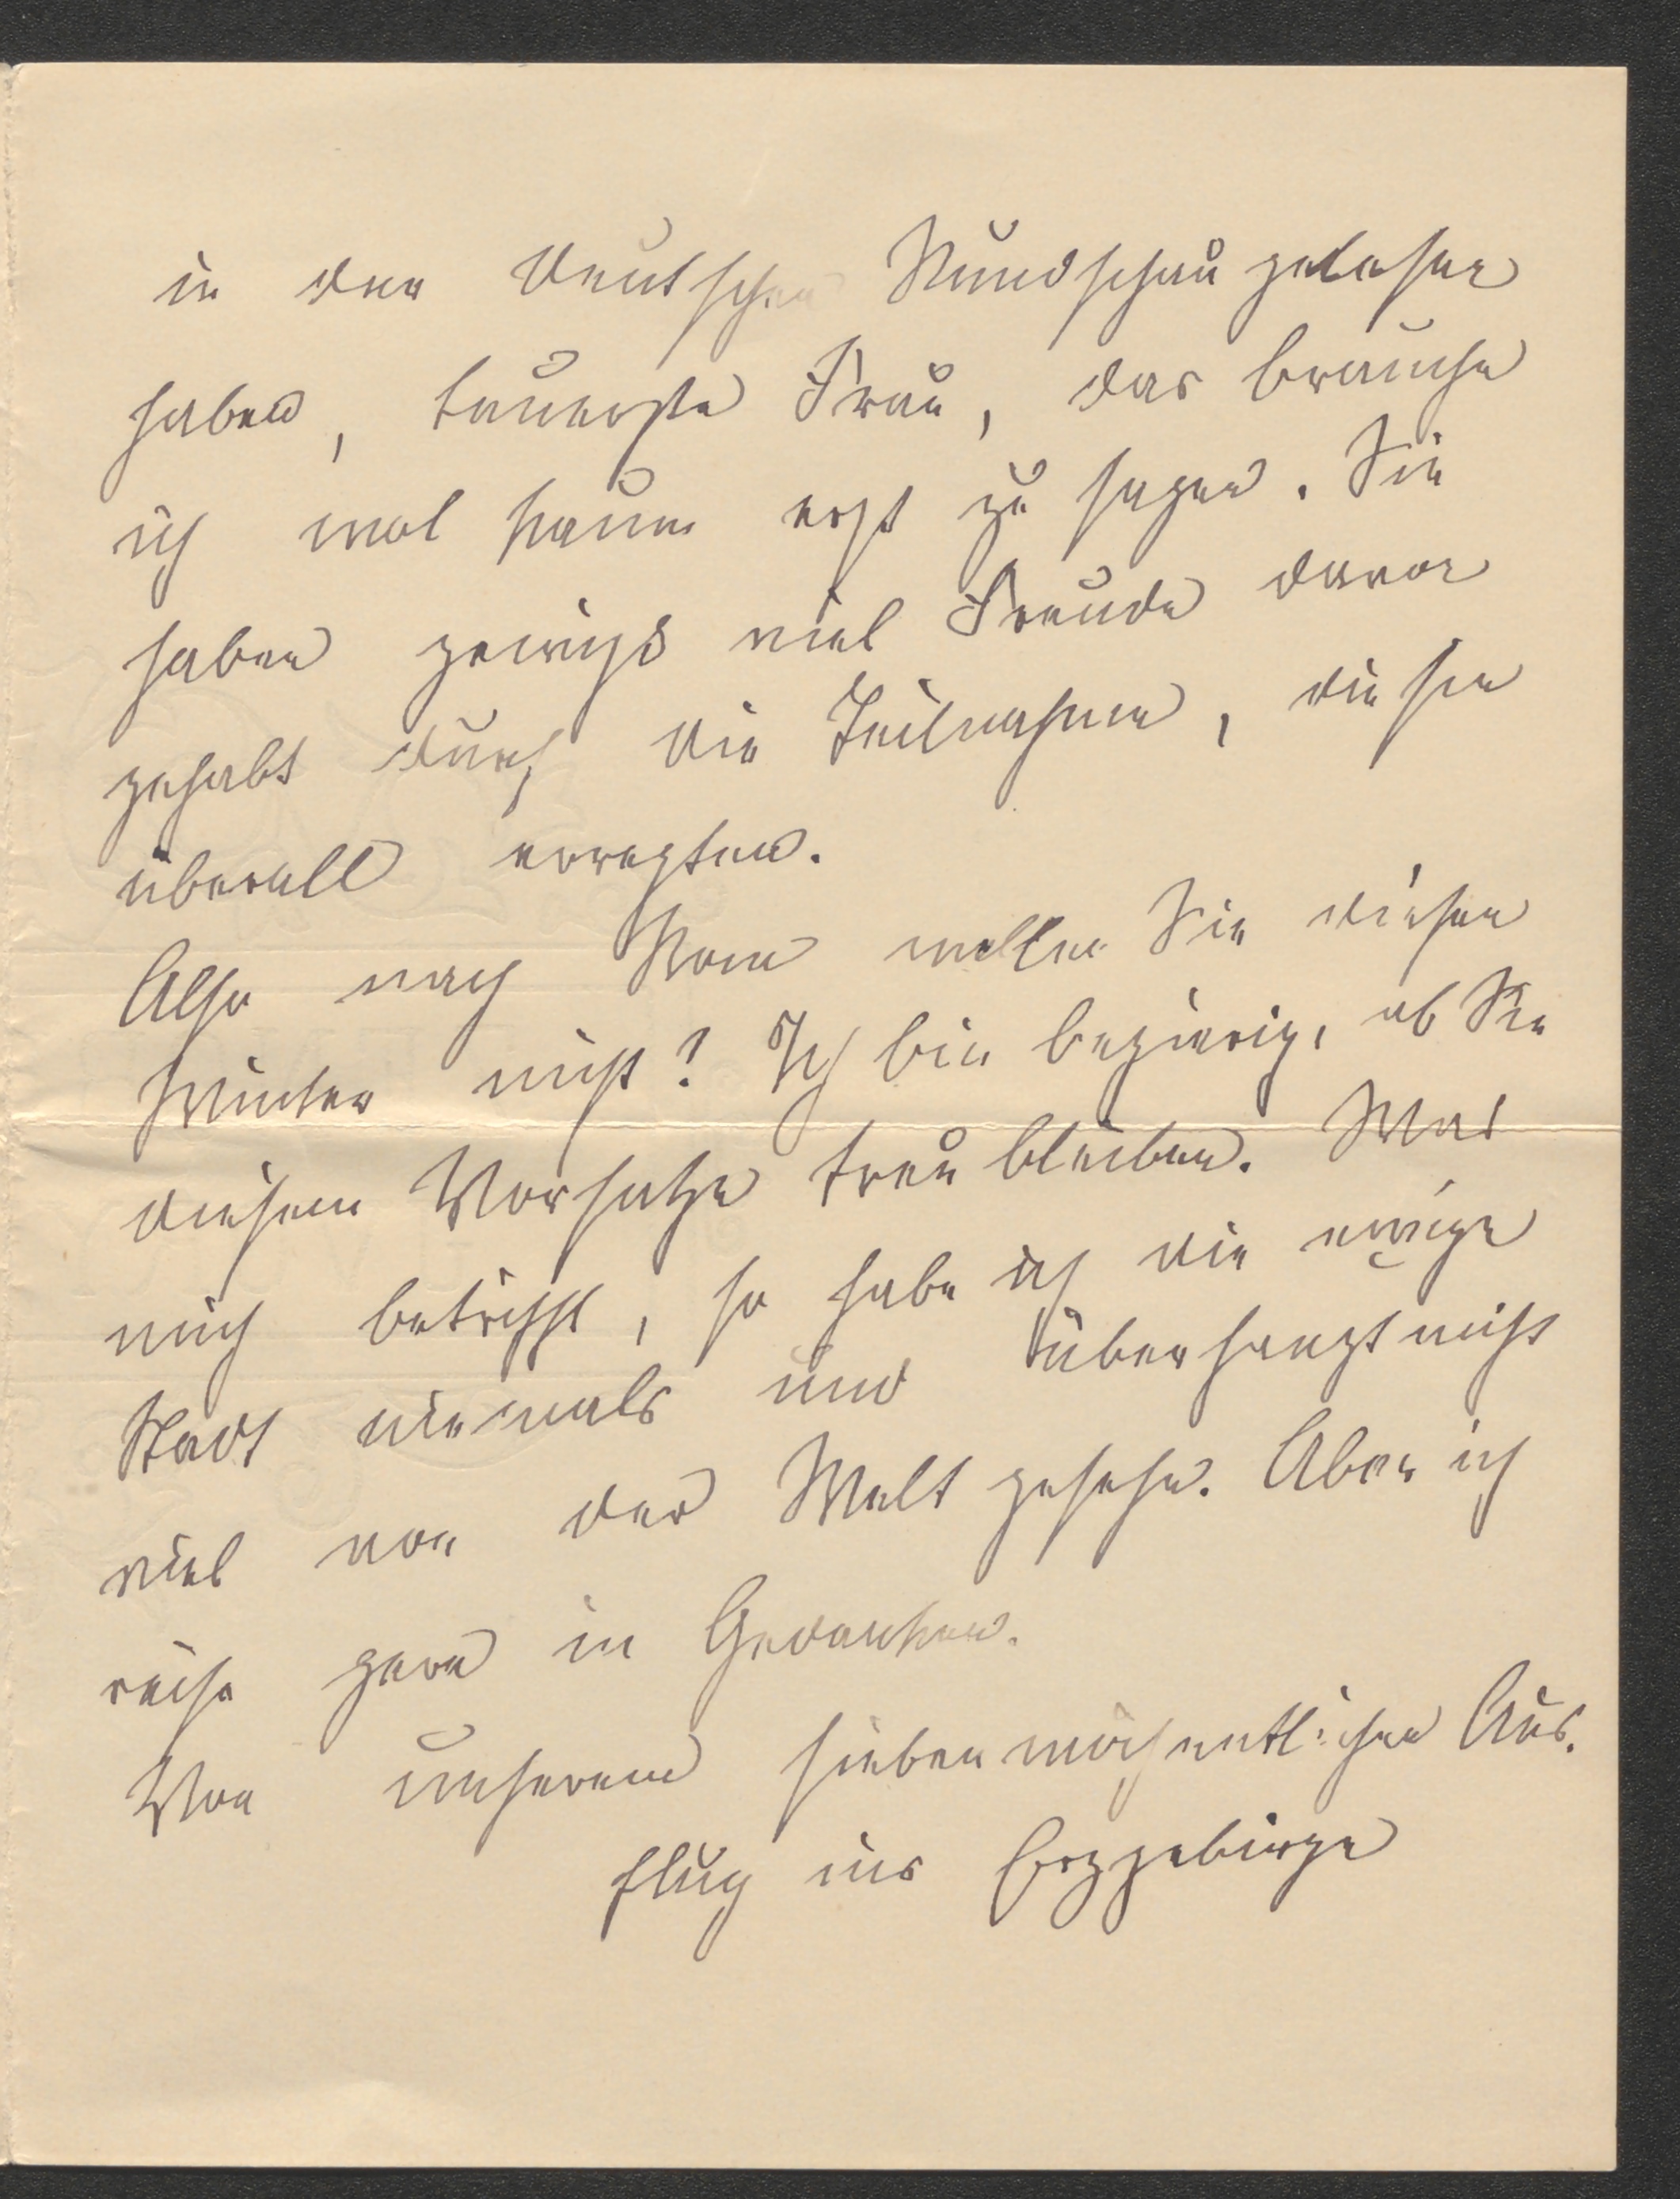 in der deutschen Rundschau gelesen
haben, teuerste Frau, das brauche
ich wol kaum erst zu sagen. Sie
haben gewiß viel Freude davon
gehabt durch die Teilnahme, die sie
überall erregten.
Also nach Rom wollen Sie diesen
Winter nicht? Ich bin begierig, ob Sie
diesem Vorsatze treu bleiben. Was
mich betrifft, so habe ich die ewige
Stadt niemals und überhaupt nicht
viel von der Welt gesehn. Aber ich
reise gern in Gedanken.
Von unserem siebenwöchentlichen Aus-
flug ins Erzgebirge